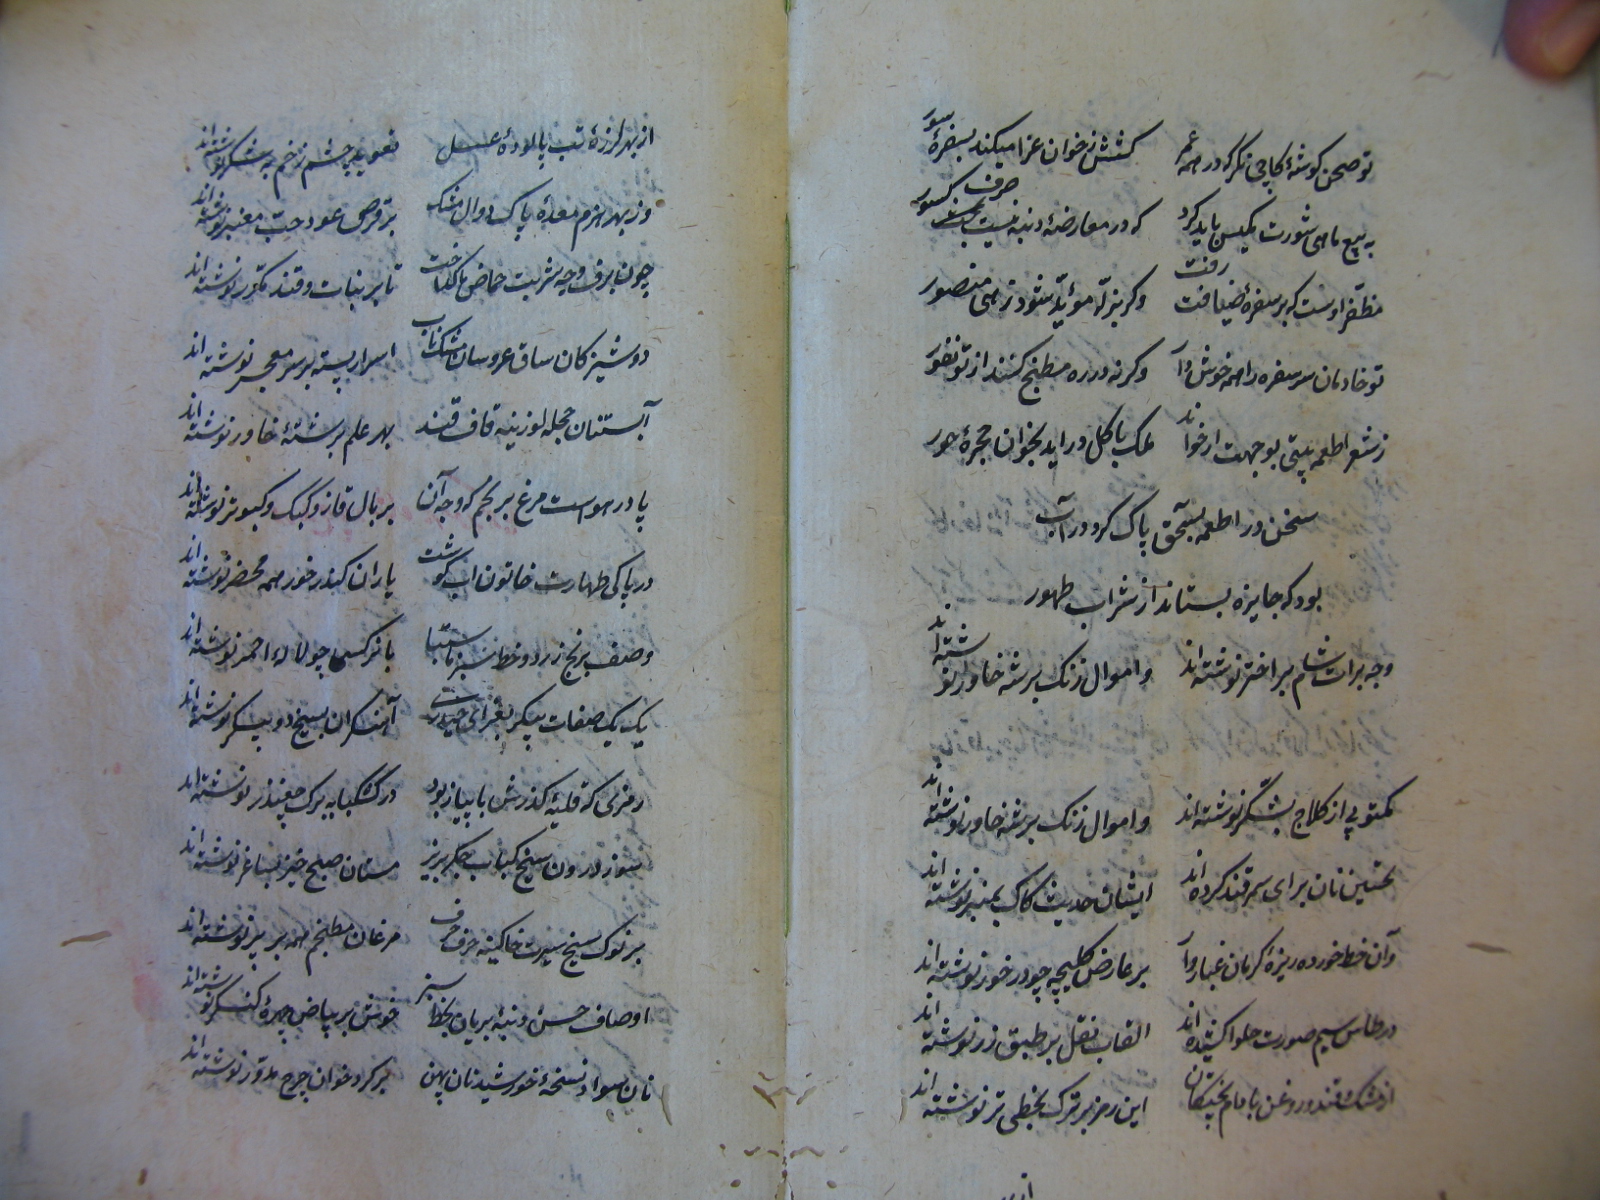 تو صحن گوشهٔ کاچی نگر که در همه عم کشش ز خوان عزا میکند بسفرهٔ سور
به پیچ ماهی شورت بکیسن باید کرد که در معارضهٔ دنبه نیست بحث صرف کسور
مظفّر اوست که بر سفرهٔ ضیافت رفت وگر بنزله مؤیّد شود زهی منصور
تو خادمان سر سفره را همه خوش دار وگرنه در ره مطبخ کنند از تو نفور
ز شعر اطعمه بیتی بو جهت ار خواند ملک با کل در اید بخوان حجرهٔ حور
سخن در اطعمه بسحق پاک کرد در آب
بود که جایزه بستاند از شراب طهور
وجه برات شام بر اختر نوشته اند و اموال زنک بر شه خاور نوشته اند
مکتوبی از کلاج بشکّر نوشته اند و اموال زنک بر شه خاور نوشته اند
تحسین نان برای سمرقند کرده اند ایشان حدیث کاک بمنبر نوشته اند
و آن خط خورده ریزهٔ کرمان غبار وار بر عارض کلیچه چو در خور نوشته اند
در طاس سیم صورت حلوا کشیده اند القاب نقل بر طبق زر نوشته اند
از مشک و قند و روغن بادام پختگان این رمز بر ترک بخطی تر نوشته اند
از بهر لرزهٔ تب پالودهٔ عسل تعویذ چشم زخم به شکر نوشته اند
وز بهر هزم معدهٔ پاک دوال مشک بر قرص عود حب معنبر نوشته اند
چون برف وجه شربت حماض ما گداخت تا بر نبات و قند مکرّر نوشته اند
دوشیزکان ساق عروسان مشک ناب اسرار پسته بر سر معجر نوشته اند
آبستنان حجله لوزینه قاف قند بهر علم برشتهٔ خاور نوشته اند
پا در هواست مرغ برنجم که وجه آن بر بال قاز و کبک و کبوتر نوشته اند
در پاکی طهارت خاتون اب گوشت یاران کندر خور همه محضر نوشته اند
وصف برنج زرد و خط سبز ماستبا با نرگس چو لالهٔ احمر نوشته اند
یک یک صفات پیکر بغرای حیدری آهنگران بسیخ دو پیکر نوشته اند
رمزی که قلیهٔ گذرش با پیاز بود در کشکبا به برک چغندر نوشته اند
سوز درون سیخ کباب جگر بریز مستان صبح خیز بساغر نوشته اند
بر نوک سیخ سیرت خاکینه حرف حرف مرغان مطبخم همه بر پر نوشته اند
اوصاف حسن دنبه بریان بخط سبز خوش بر بیاض چهرهٔ کنگر نوشته اند
نان سواد نسخهٔ خورشید نان پهن بر گرد خوان چرخ مدوّر نوشته اند